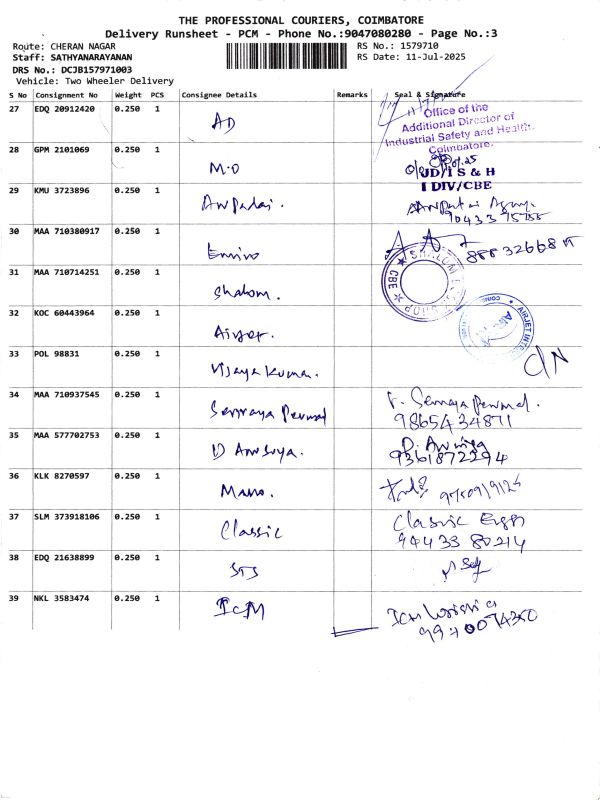 THE PROFESSIONAL COURIERS, COIMBATORE
Delivery Runsheet - PCM - Phone No.:9047080280 - Page No.:3
Route: CHERAN NAGAR
Staff: SATHYANARAYANAN
DRS No.: DCJB157971003
Vehicle: Two Wheeler Delivery
RS No.: 1579710
RS Date: 11-Jul-2025
S No Consignment No Weight PCS Consignee Details Remarks Seal & Signature
27 EDQ 20912420 0.250 1 AD
Office of the
Additional Director of
Industrial Safety and Health,
Coimbatore.
28 GPM 2101069 0.250 1 M.O
JD/I S & H
I DIV/CBE
29 KMU 3723896 0.250 1
30 MAA 710380917 0.250 1 Enviro
31 MAA 710714251 0.250 1 Shalom.
SHALOM
CBE
32 KOC 60443964 0.250 1
AIRJET
33 POL 98831 0.250 1 Vijaya Kumar.
34 MAA 710937545 0.250 1
9865434871
35 MAA 577702753 0.250 1 D Anusuya.
9361872294
36 KLK 8270597 0.250 1 Mano.
37 SLM 373918106 0.250 1 Classic
Classic Engg
94433 80214
38 EDQ 21638899 0.250 1 STS
39 NKL 3583474 0.250 1 ICM
ICM